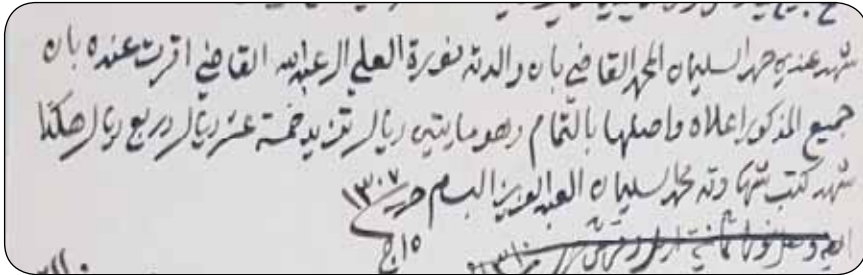 شهد عندي حمد السليمان المحمد القاضي بان والدته نورة العلي ال عبدالله القاضي اقرت عنده بان
جميع المذكور اعلاه واصلها بالتمام وهو مايتين ريال تزيد خمسة عشر ريال وربع ريال هكذا
شهد كتب شهادته محمد السليمان العبدالعزيز البسام حرر ١٣٠٧
١٥ ج